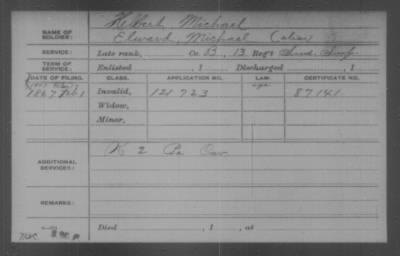 NAME OF SOLDIER: Helbert, Michael
Elward, Michael (alias)
SERVICE: Late rank, Co. B, 13 Reg't Ind. Troops
TERM OF SERVICE: Enlisted , 1 Discharged , 1
DATE OF FILING. CLASS. APPLICATION NO. LAW. CERTIFICATE NO.
1867 Feb 1 Invalid, 121723 87141
Widow,
Minor,
ADDITIONAL SERVICES: K 2 Pa Cav
REMARKS:
Died , 1 , at